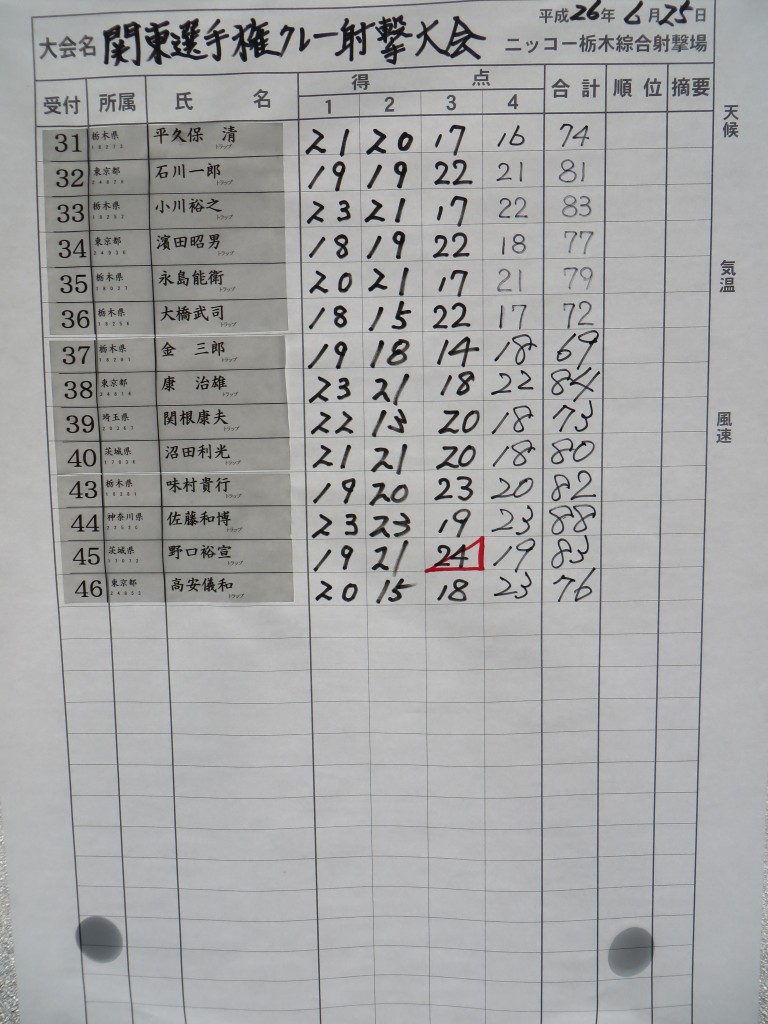 平成26年6月25日
大会名 関東選手権クレー射撃大会 ニッコー栃木綜合射撃場
受付 所属 氏名 得点 合計 順位 摘要
1 2 3 4
31 栃木県 平久保 清 トラップ 21 20 17 16 74
32 東京都 石川一郎 トラップ 19 19 22 21 81
33 栃木県 小川裕之 トラップ 23 21 17 22 83
34 東京都 濱田昭男 トラップ 18 19 22 18 77
35 栃木県 永島能衛 トラップ 20 21 17 21 79
36 栃木県 大橋武司 トラップ 18 15 22 17 72
37 栃木県 金 三郎 トラップ 19 18 14 18 69
38 東京都 康 治雄 トラップ 23 21 18 22 84
39 埼玉県 関根康夫 トラップ 22 13 20 18 73
40 茨城県 沼田利光 トラップ 21 21 20 18 80
43 栃木県 味村貴行 トラップ 19 20 23 20 82
44 神奈川県 佐藤和博 トラップ 23 23 19 23 88
45 茨城県 野口裕宣 トラップ 19 21 24 19 83
46 東京都 高安儀和 トラップ 20 15 18 23 76
天候
気温
風速